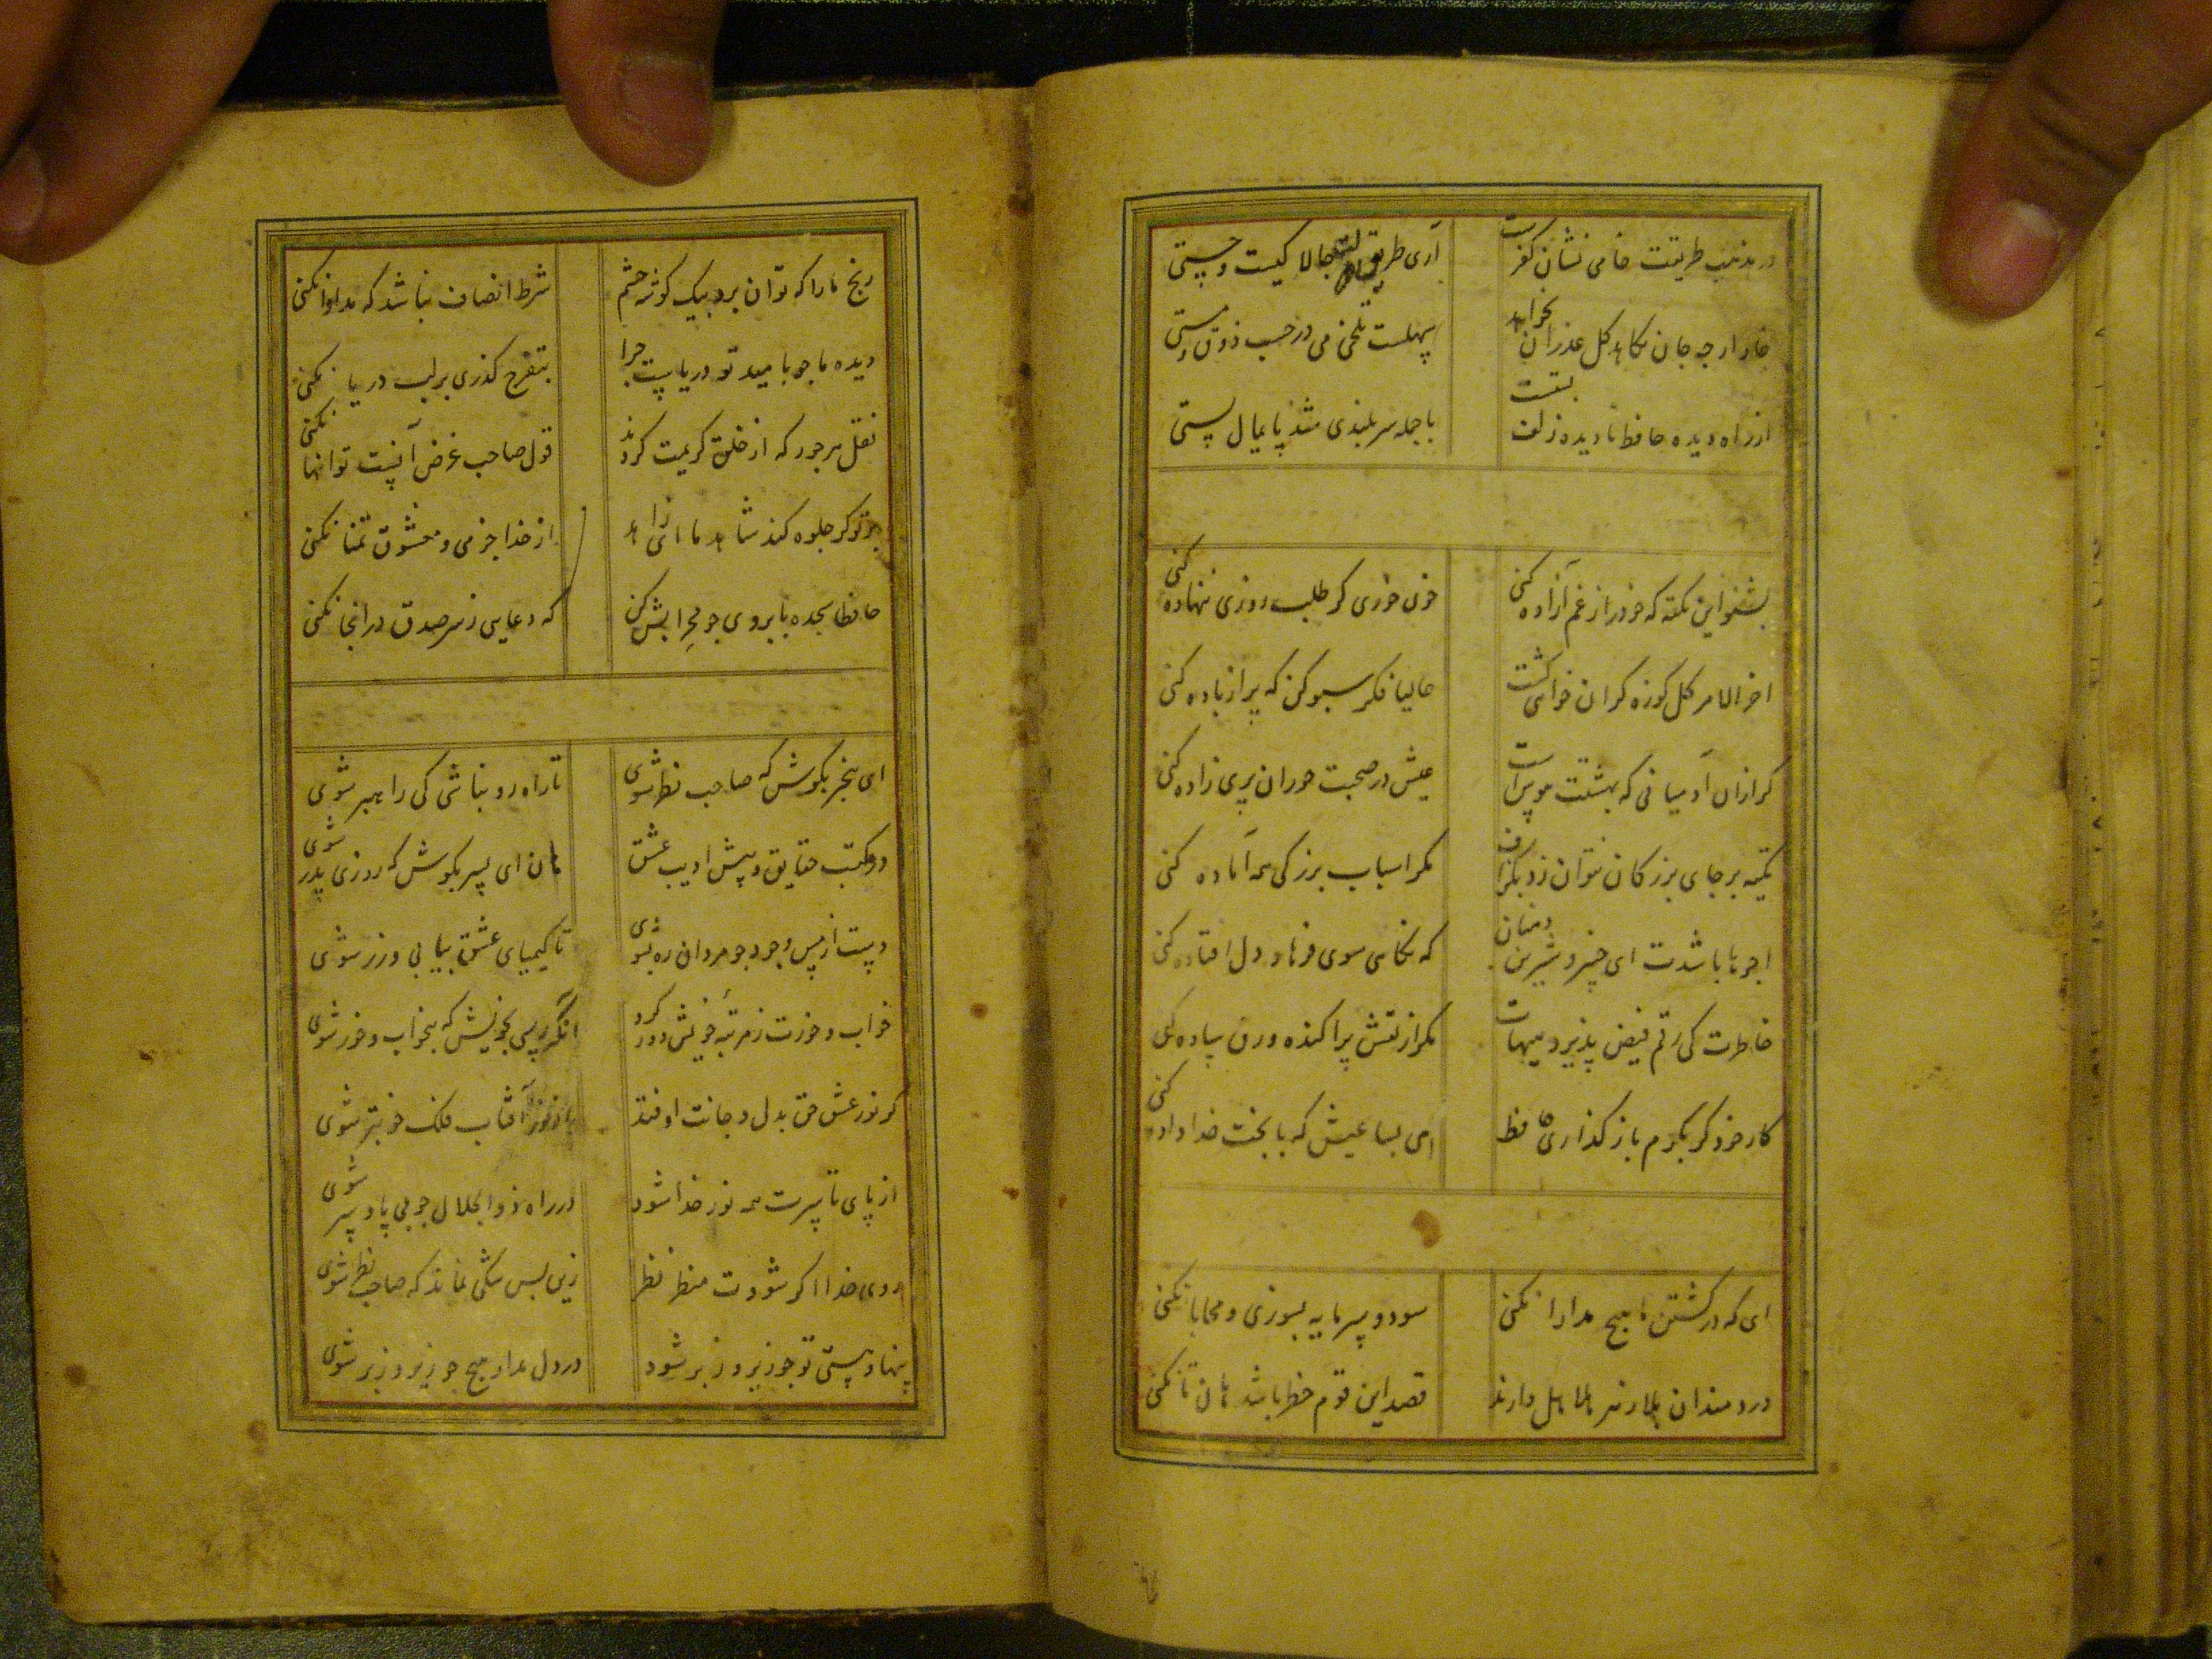 در مذهب طریقت خامی نشان کفر ست آری طریق جالا کیست و چستی
خار ارچه جان بکاهد کل عذر ان بخواهد سهلست تلخی می در جنب ذوق مستی
از راه دیده حافظ تا دیده زلف بستت با جمله سر بلندی شد پایمال پستی
بشنو این نکته که خود را ز غم آزاده کنی خون خوری کر طلب روزی ننهاده کنی
اخر الامر کل کوزه کران خواهی کشت حالیا فکر سبو کن که پر از باده کنی
کر ازان آدمیانی که بهشتت هوس است عیش در صحبت حوران پری زاده کنی
تکیه بر جای بزرکان نتوان زد بکزاف مکر اسباب بزرکی همه آماده کنی
اجرها باشدت ای خسرو شیرین دهنان که نکاهی سوی فرهاد دل افتاده کنی
خاطرت کی رقم فیض پذیرد هیهات مکر از نقش پراکنده ورق ساده کنی
کار خود کر بکرم باز کذاری حافظ ای بسا عیش که با بخت خداداده کنی
ای که در کشتن ما هیچ مدارا نکنی سود و سرمایه بسوزی و محابا نکنی
دردمندان بلا زهر هلاهل دارند قصد این قوم خطا باشد هان تا نکنی
رنج ما را که توان برد بیک کوشه چشم شرط انصاف نباشد که مداوا نکنی
دیده ما چو بامید تو دریاست چرا بتفرج کذری بر لب دریا نکنی
نقل هر جور که از خلق کریمت کردند قول صاحب غرض آنست تو انها نکنی
بر تو کر جلوه کند شاهد ما ای زاهد از خدا جز می و معشوق تمنا نکنی
حافظا سجده بابروی چو محرابش کن که دعایی ز سر صدق در انجا نکنی
ای بیخبر بکوش که صاحب نظر شوی تا راه رو نباشی کی راهبر شوی
در مکتب حقایق و پیش ادیب عشق هان ای پسر بکوش که روزی پدر شوی
دست از مس وجود چو مردان ره بشوی تا کیمیای عشق بیابی و زر شوی
خواب و خورت ز مرتبه خویش دور کرد آنکه رسی بخویش که بیخواب و خور شوی
کر نور عشق حق بدل و جانت اوفتد آفتاب فلک خوبتر شوی
از پای تا سرت همه نور خدا شود در راه ذوالجلال چو بی پا و سر شوی
روی خدا اکر شودت منظر نظر زین پس شکی نماند که صاحب نظر شوی
بنیاد هستی تو چو زیر و زبر شود در دل مدار هیچ چو زیر و زبر شوی